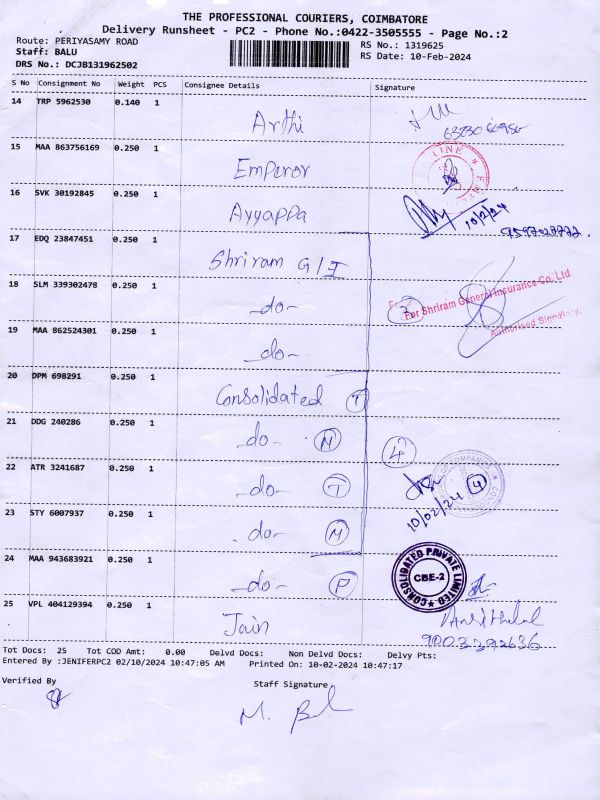 THE PROFESSIONAL COURIERS, COIMBATORE
Delivery Runsheet - PC2 - Phone No.:0422-3505555 - Page No.:2
Route: PERIYASAMY ROAD
RS No.: 1319625
Staff: BALU
RS Date: 10-Feb-2024
DRS No.: DCJB131962502
S No Consignment No Weight PCS Consignee Details Signature
14 TRP 5962530 0.140 1
Arthi
15 MAA 863756169 0.250 1
Emperor
LINE
16 SVK 30192845 0.250 1
Ayyappa
10/2/24
9597028772.
17 EDQ 23847451 0.250 1
Shriram G/I
18 SLM 339302478 0.250 1
-do- 3
For Shriram General Insurance Co. Ltd
Authorised Signatory.
19 MAA 862524301 0.250 1
-do-
20 DPM 698291 0.250 1
Consolidated T
21 DDG 240286 0.250 1
-do- M 4
22 ATR 3241687 0.250 1
-do- T
10/02/24 4
23 STY 6007937 0.250 1
-do- M
24 MAA 943683921 0.250 1
-do- P
CONSOLIDATED PRIVATE LIMITED
CBE-2
25 VPL 404129394 0.250 1
Jain
9003392636
Tot Docs: 25 Tot COD Amt: 0.00 Delvd Docs: Non Delvd Docs: Delvy Pts:
Entered By :JENIFERPC2 02/10/2024 10:47:05 AM Printed On: 10-02-2024 10:47:17
Verified By
Staff Signature